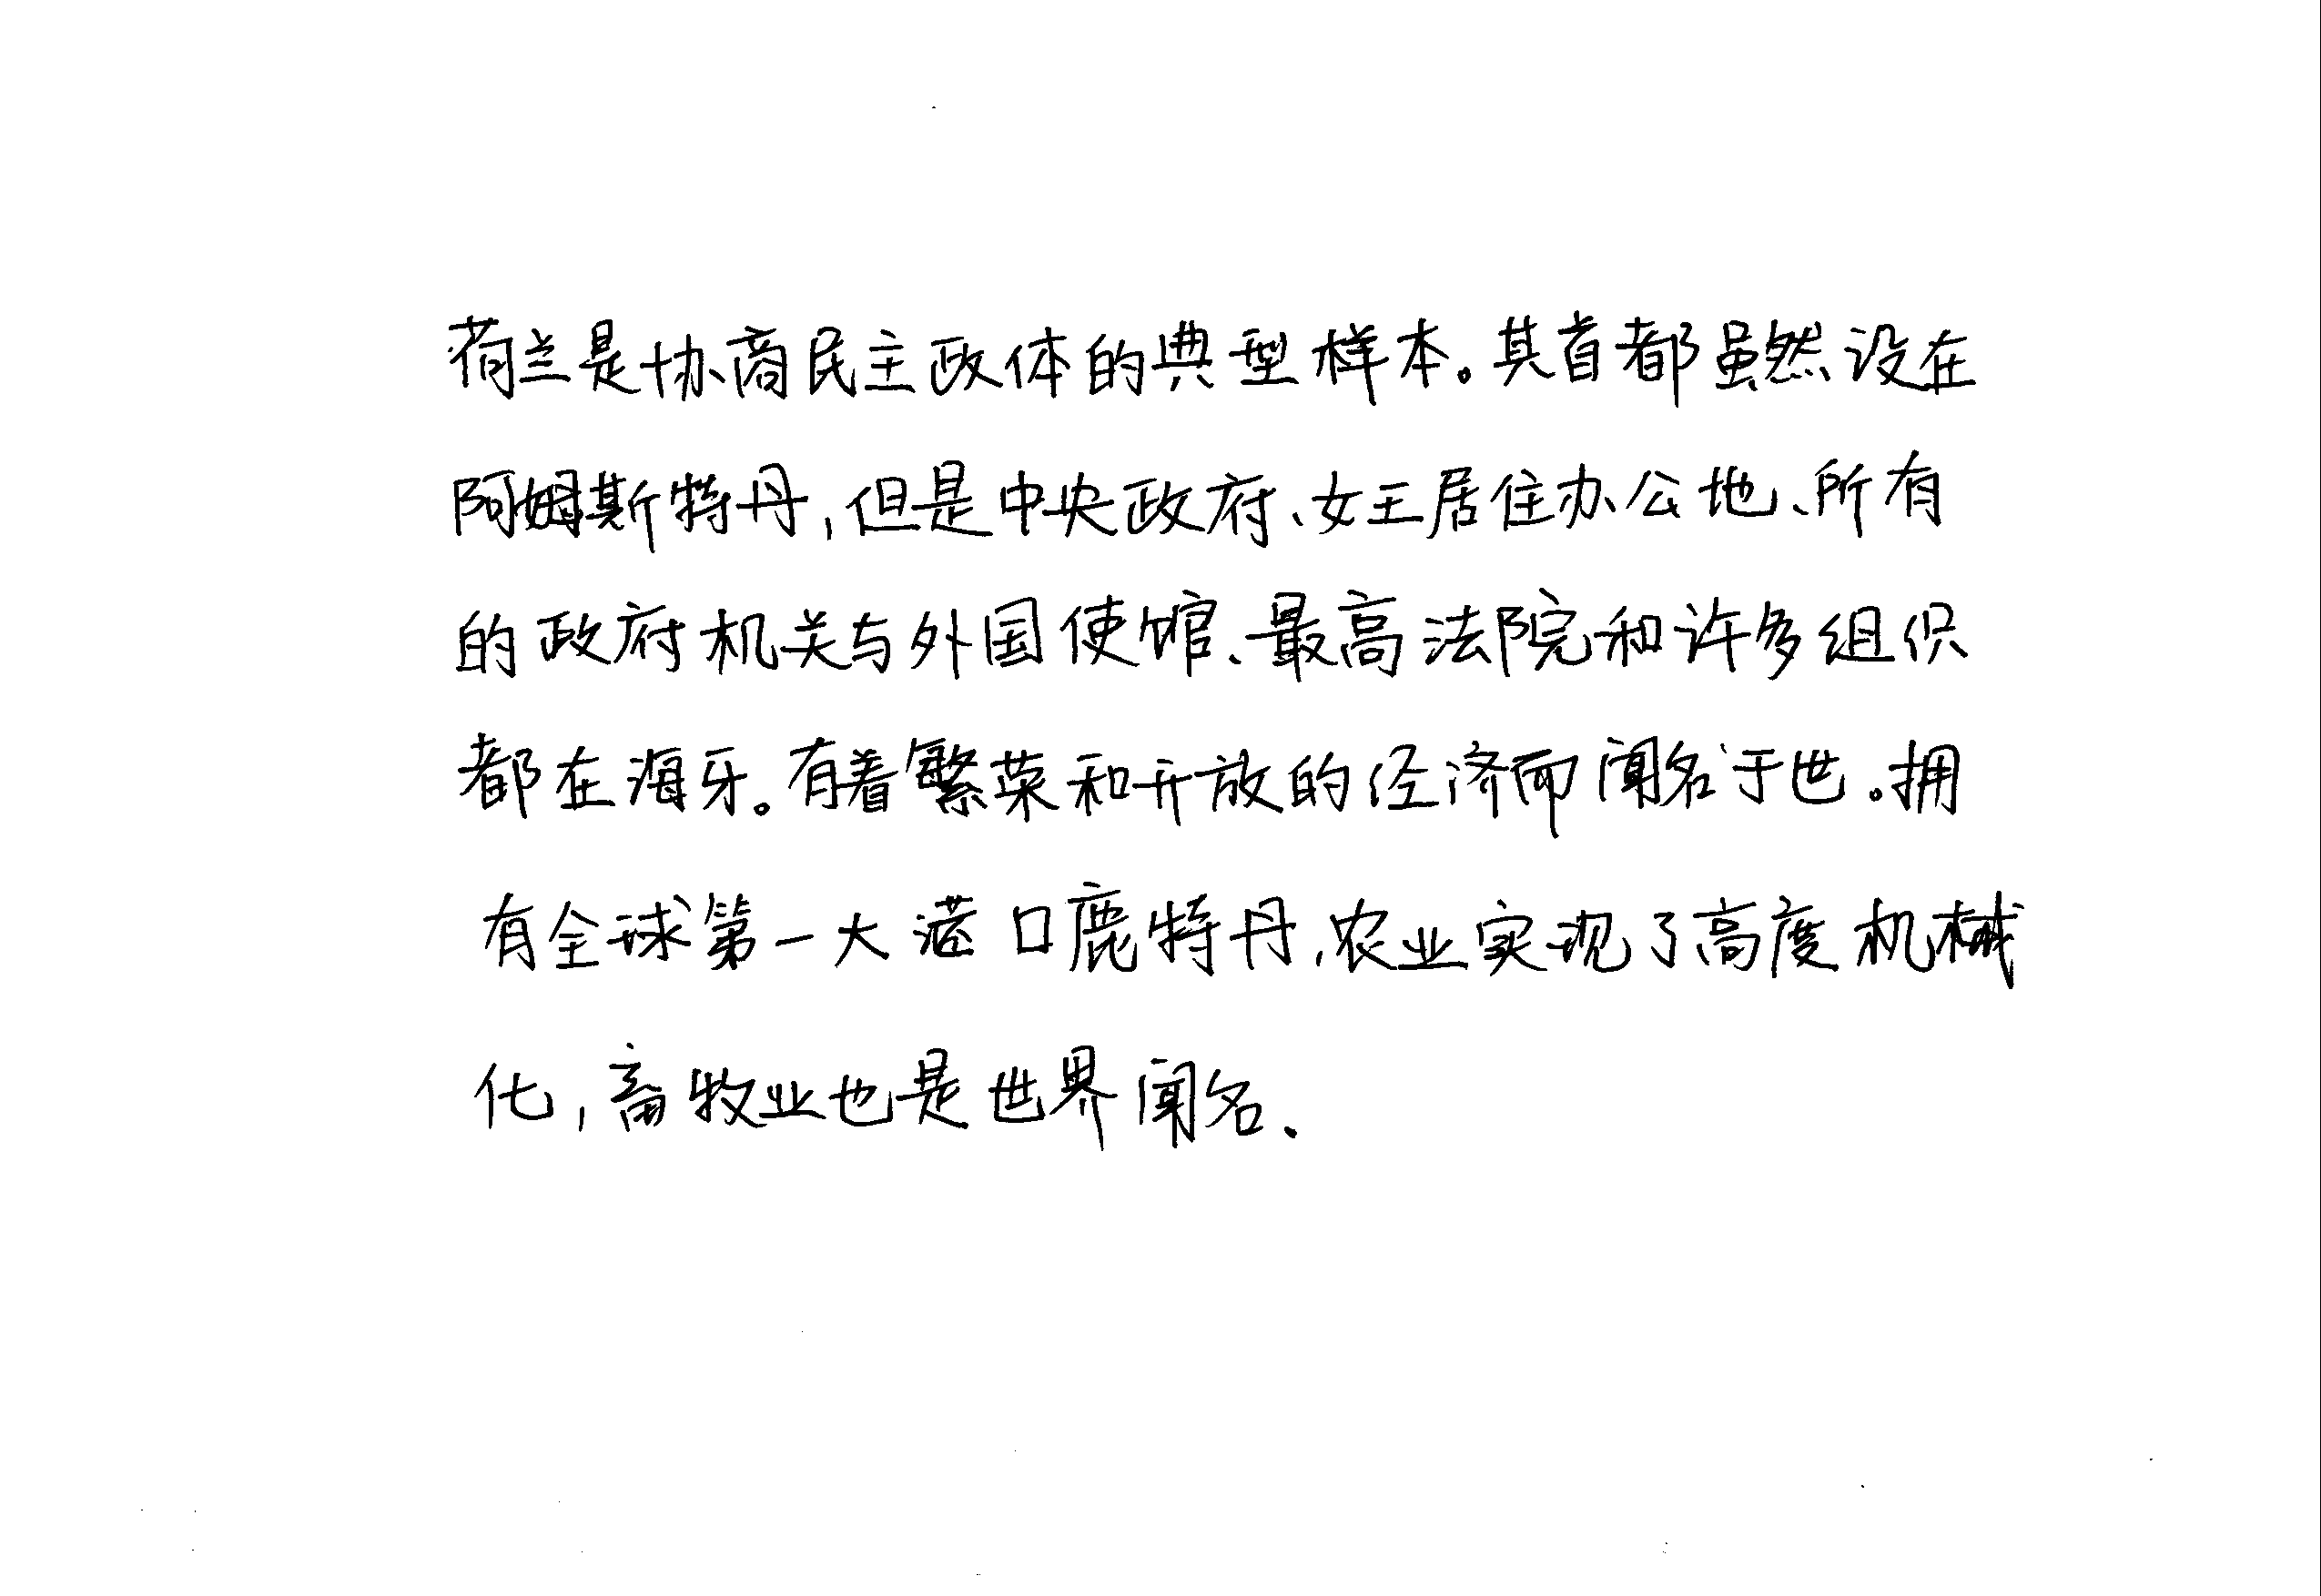 荷兰是协商民主政体的典型样本。其首都虽然设在
阿姆斯特丹,但是中央政府、女王居住办公地、所有
的政府机关与外国使馆、最高法院和许多组织
都在海牙。有着繁荣和开放的经济而闻名于世。拥
有全球第一大港口鹿特丹,农业实现了高度机械
化,畜牧业也是世界闻名.